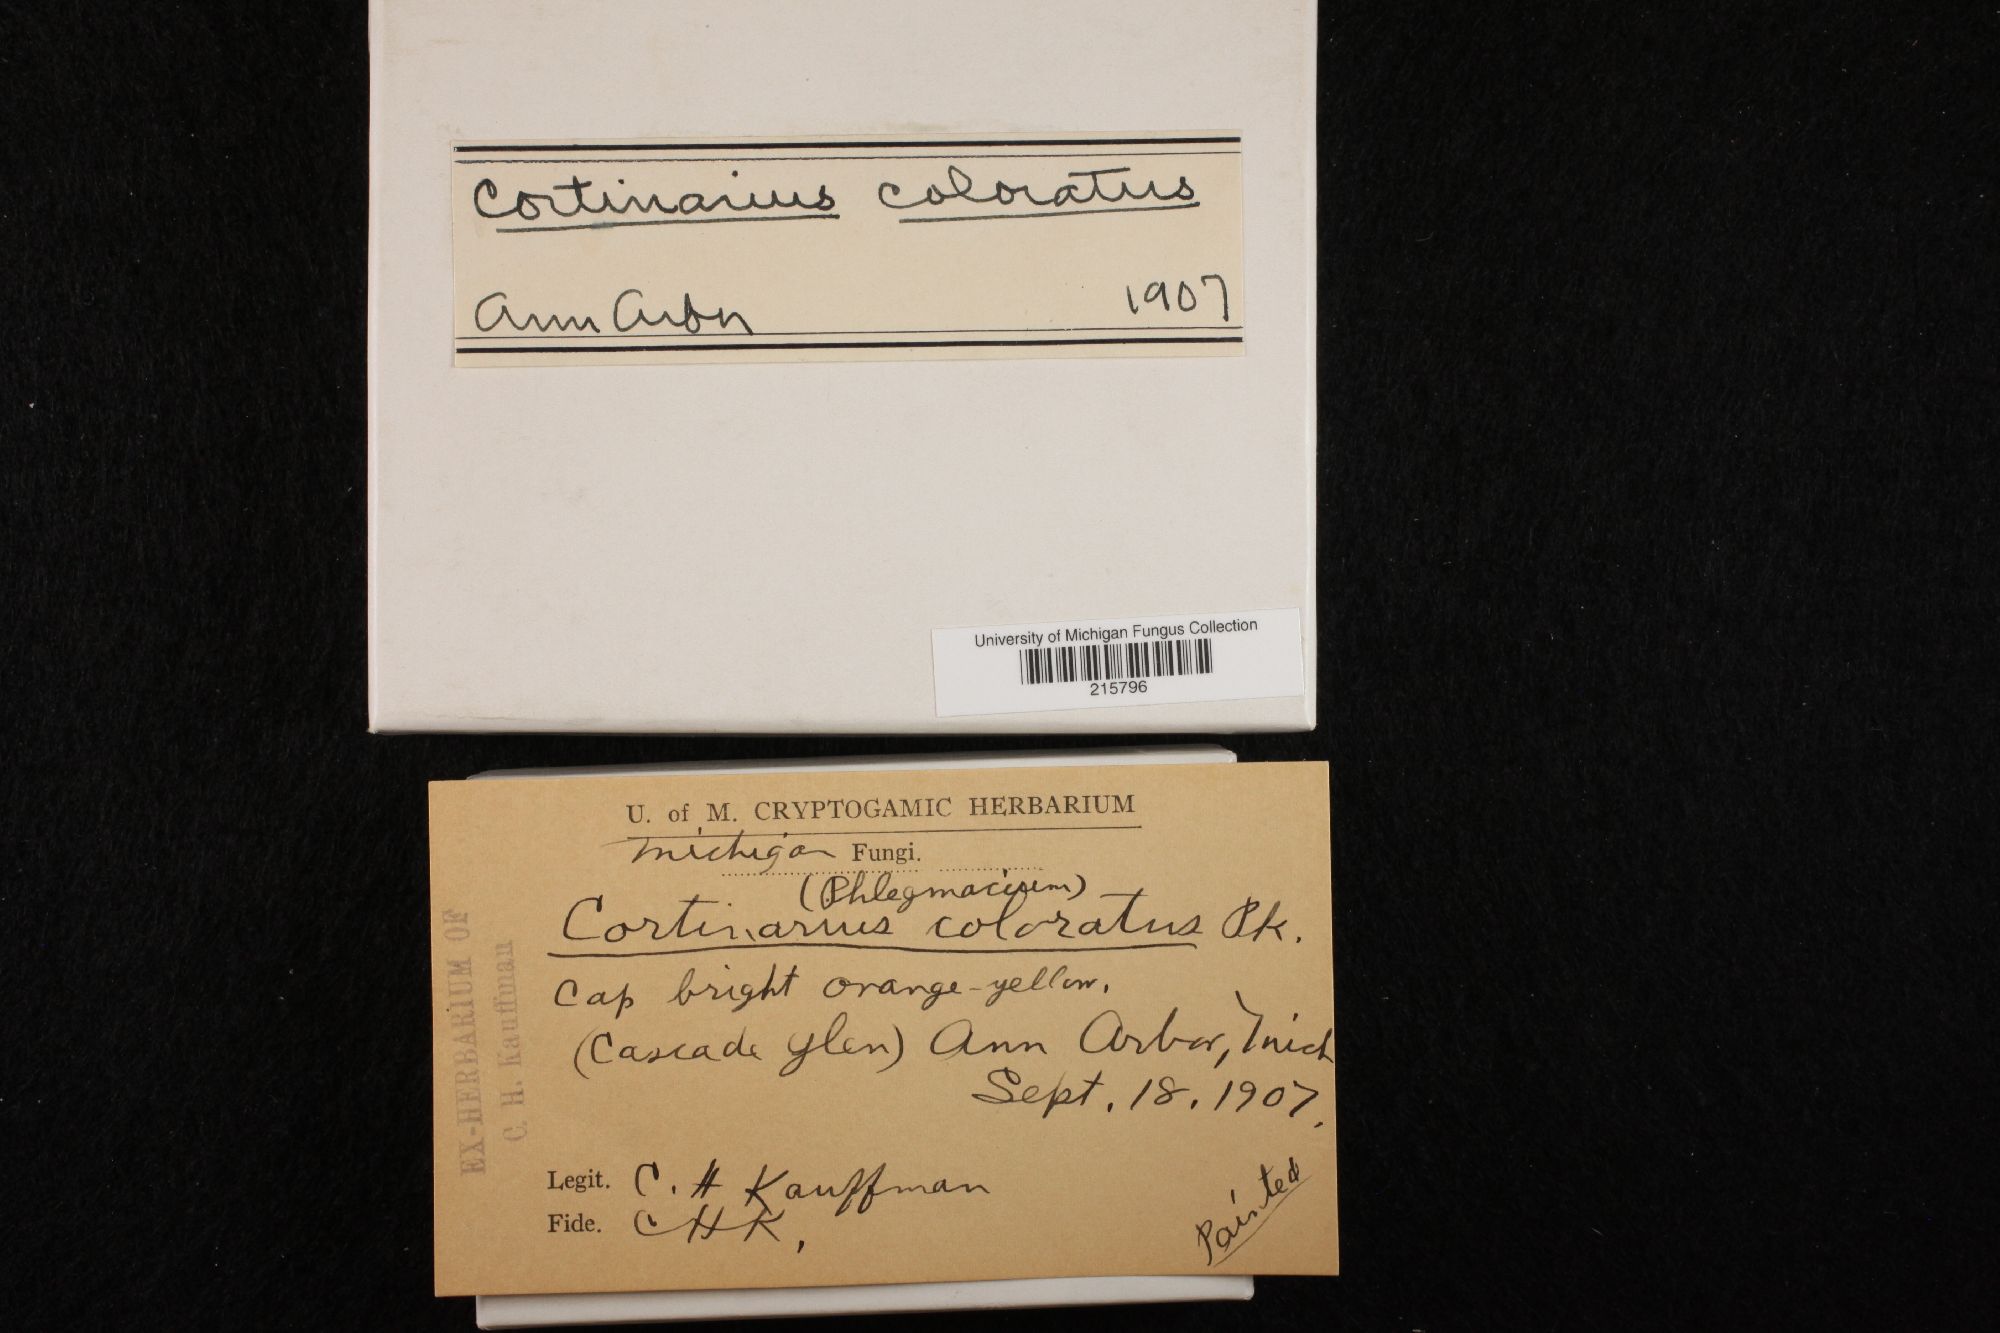 Cortinarius coloratus
Ann Arbor 1907
University of Michigan Fungus Collection
215796
U. of M. CRYPTOGAMIC HERBARIUM
Michigan Fungi.
(Phlegmacium)
Cortinarius coloratus Pk.
Cap bright orange-yellow.
(Cascade glen) Ann Arbor, Mich
Sept. 18. 1907.
Legit. C. H Kauffman
Fide. CHK.
Painted
EX-HERBARIUM OF
C. H. Kauffman